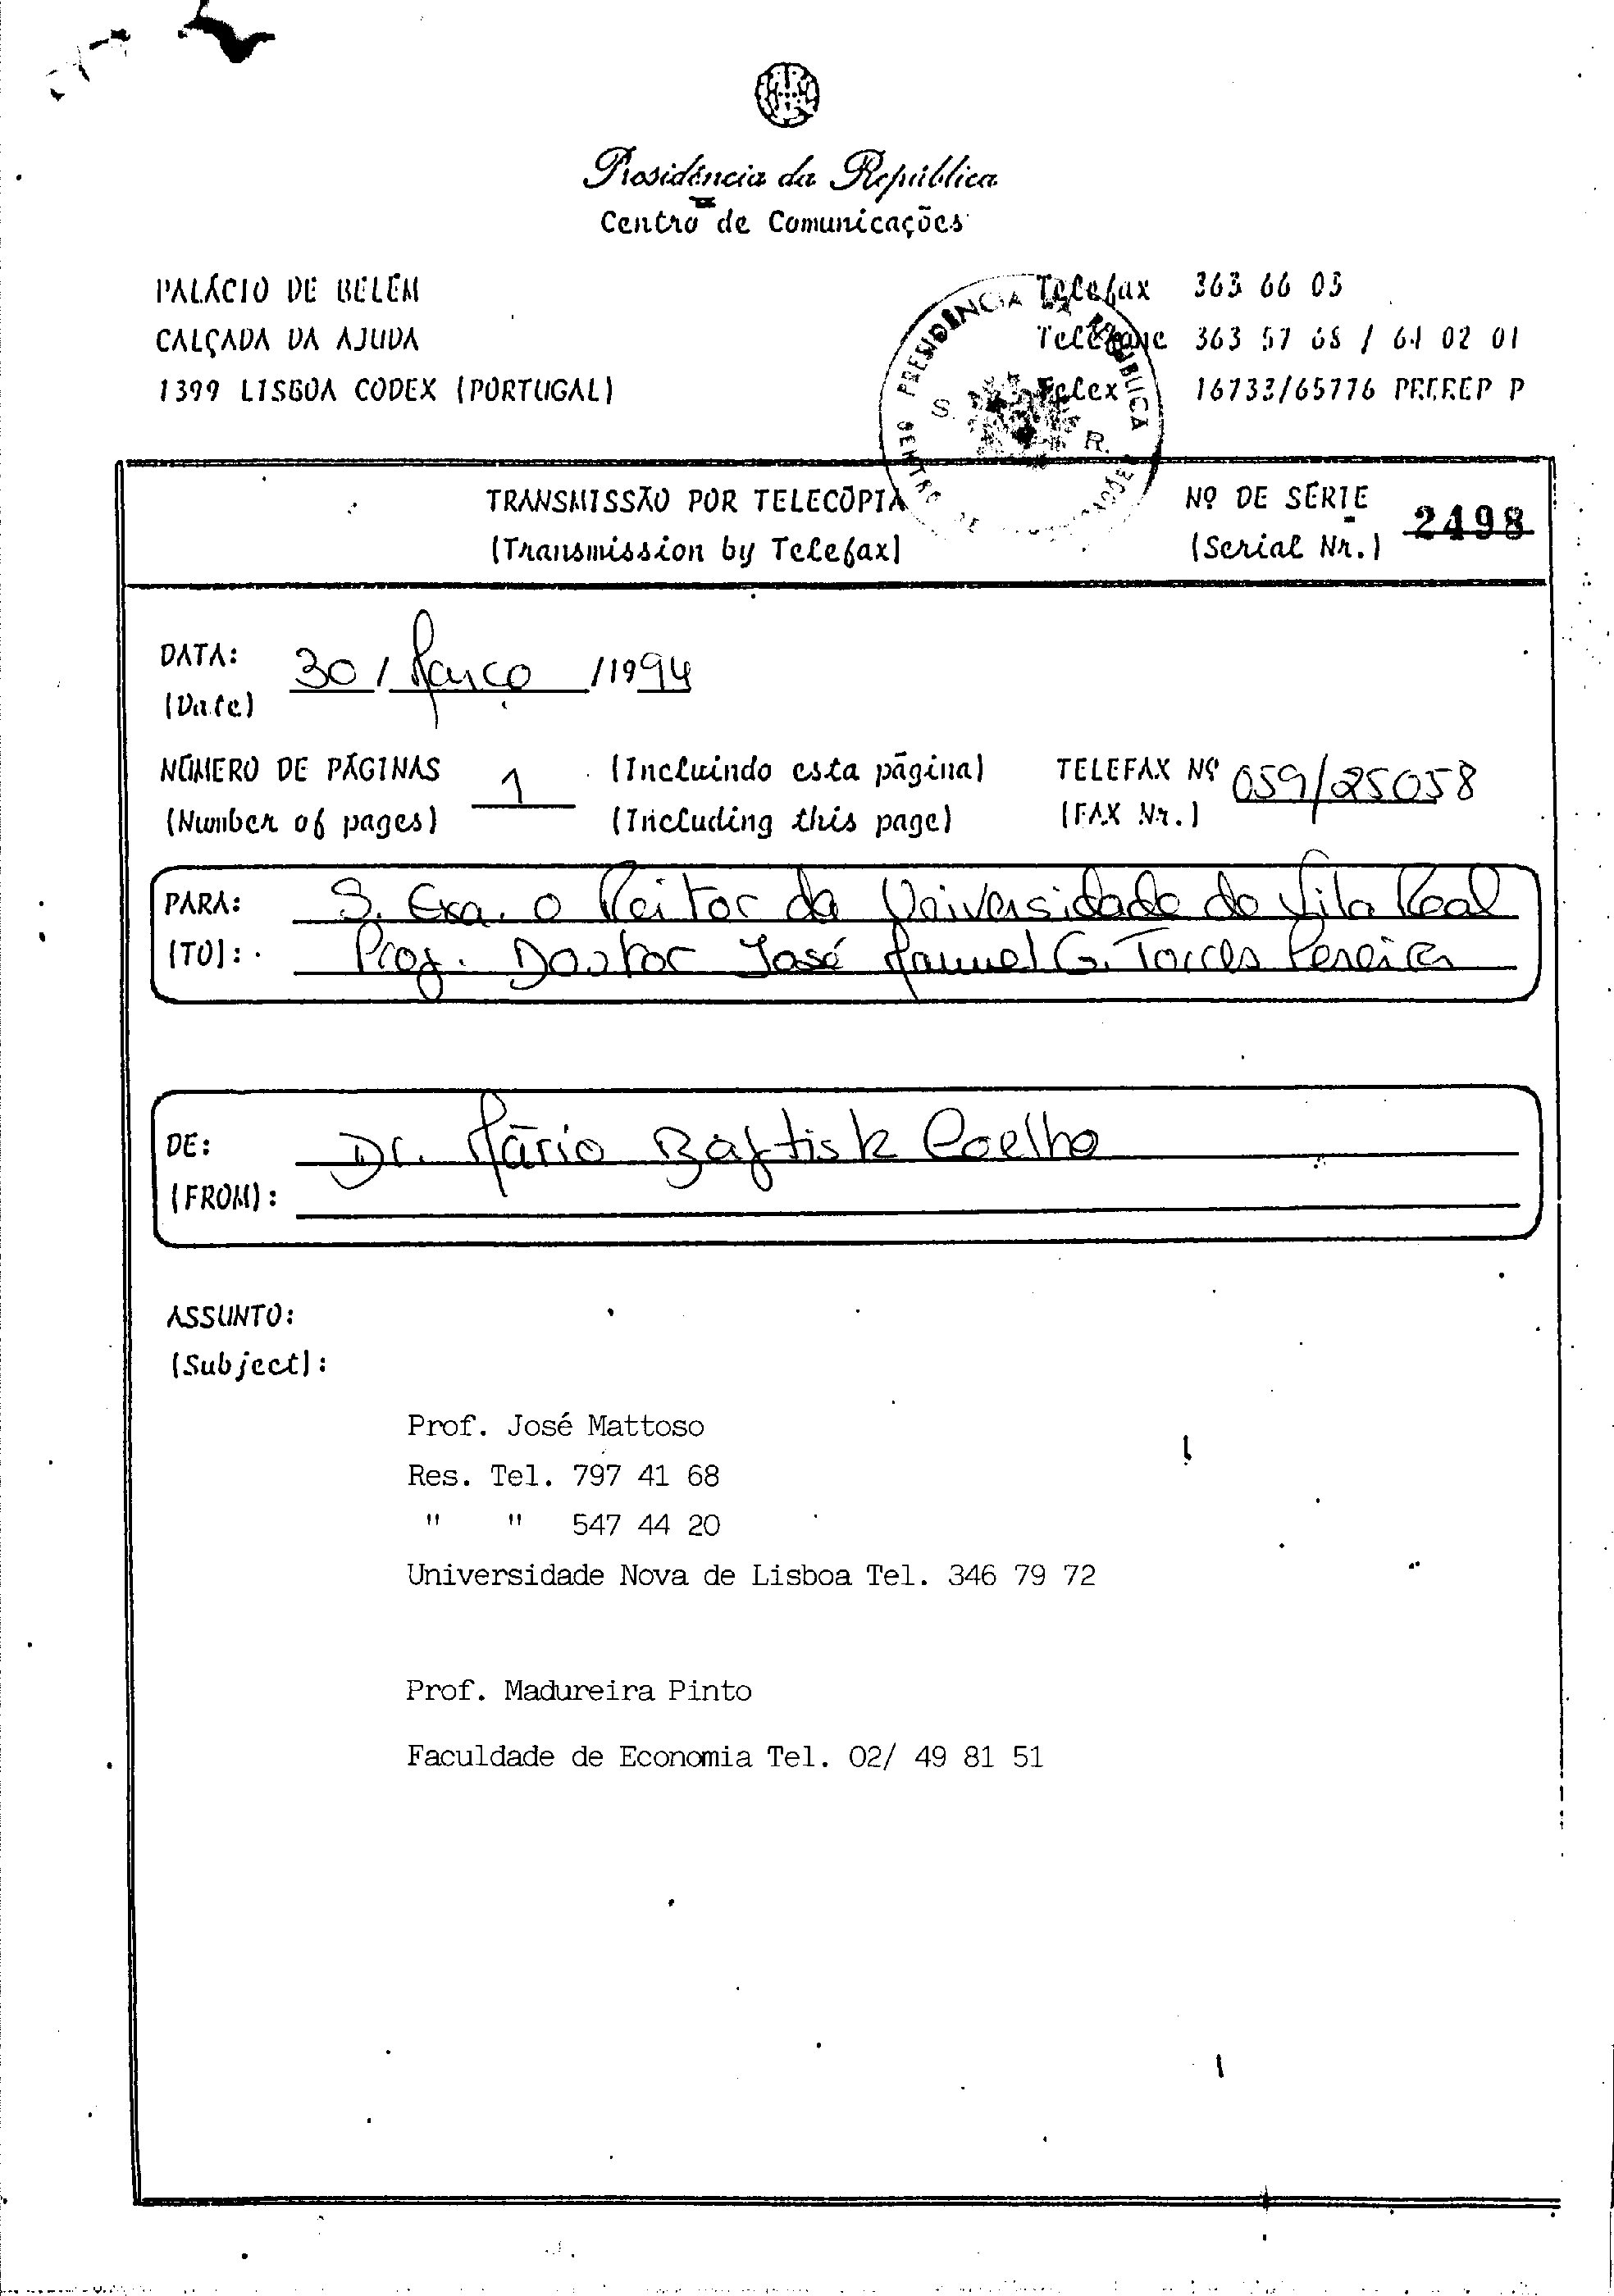 Presidência da República
Centro de Comunicações
PALÁCIO DE BELÉM
CALÇADA DA AJUDA
1399 LISBOA CODEX (PORTUGAL)
Telefax 363 66 03
Telefone 363 57 68 / 64 02 01
Telex 16733/65776 P
PRESIDÊNCIA DA REPÚBLICA
S. R.
TRANSMISSÃO POR TELECÓPIA
(Transmission by Telefax)
Nº DE SÉRIE
(Serial Nr.)
2498
DATA: 30 / Março / 1994
(Date)
NÚMERO DE PÁGINAS 1 (Incluindo esta página) TELEFAX Nº 059/25058
(Number of pages) (Including this page) (FAX Nr.)
PARA: S. Exa. o Reitor da Universidade de Vila Real
(TO): Prof. Doutor José Manuel G. Torres Pereira
DE: Dr. Mário Baptista Coelho
(FROM):
ASSUNTO:
(Subject):
Prof. José Mattoso
Res. Tel. 797 41 68
" " 547 44 20
Universidade Nova de Lisboa Tel. 346 79 72
Prof. Madureira Pinto
Faculdade de Economia Tel. 02/ 49 81 51